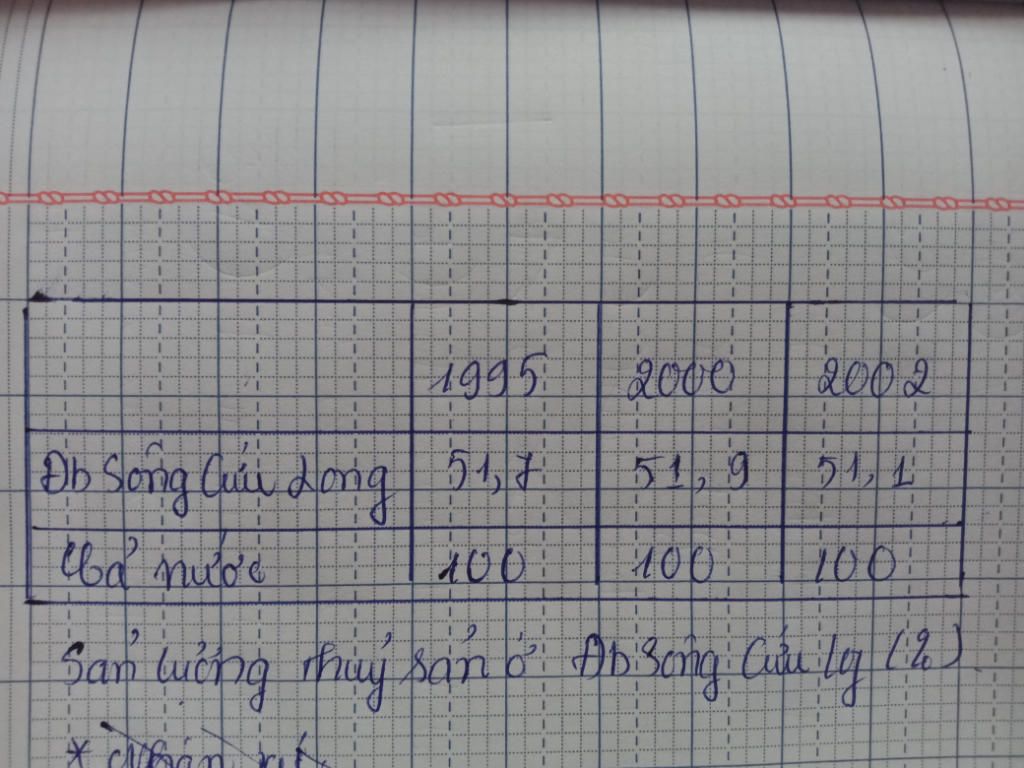 1995 2000 2002
Đb Sông Cửu Long 51,7 51,9 51,1
Cả nước 100 100 100
Sản lượng thuỷ sản ở Đb Sông Cửu lg (%)
*